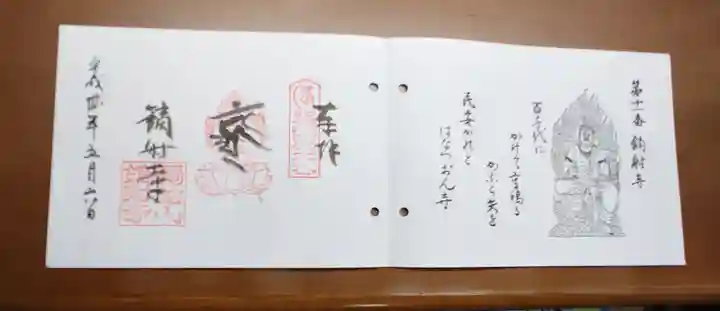 第十一番 鏑射寺
百千代に
かけて高鳴る
かぶら矢を
民安かれと
はなつおん寺
奉拝
鏑射寺
平成四年五月 日